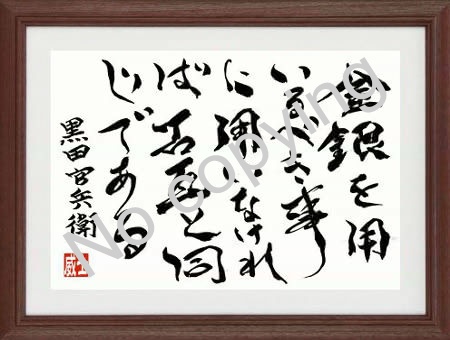 金銀を用
いるべき事
に用いなけれ
ば石瓦と同
じである
黒田官兵衛
No copying